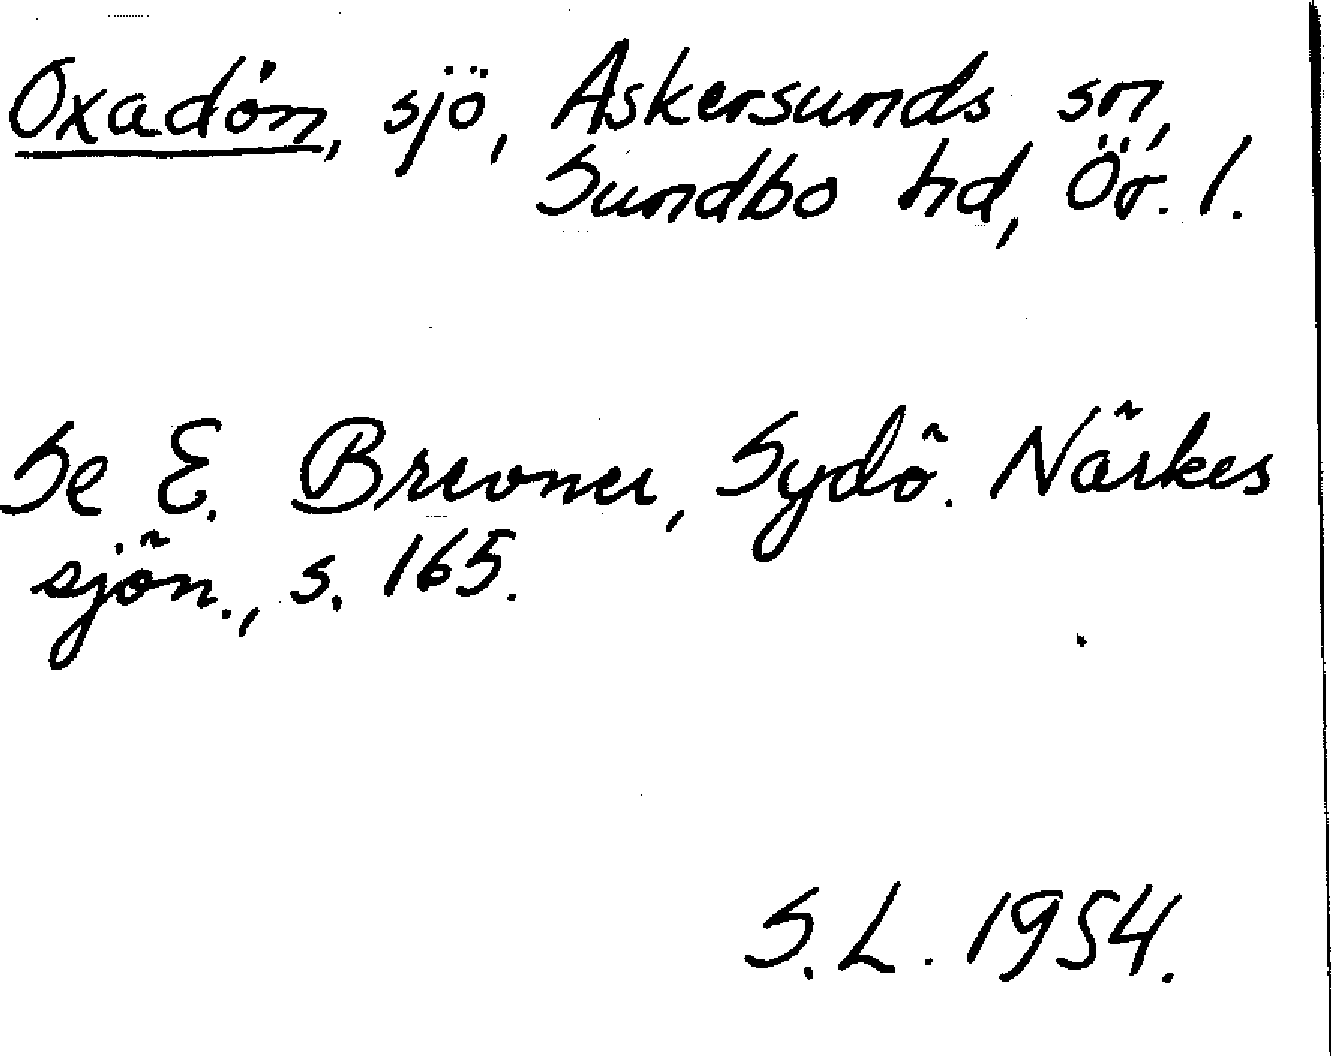 Oxadön, sjö, Askersunds sn,
Sundbo hd, Ör. l.
Se E. Brevner, Sydö. Närkes
sjön., s. 165.
S.L. 1954.